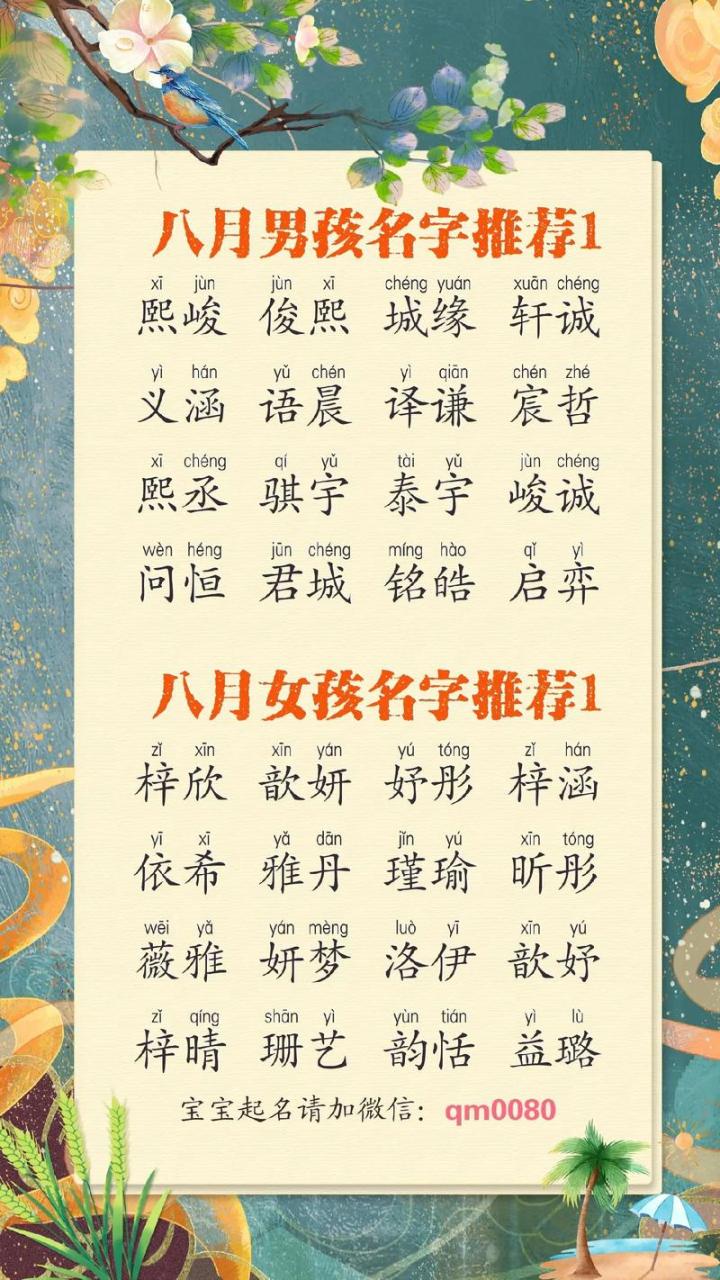 八月男孩名字推荐1
xī jùn jùn xī chéng yuán xuān chéng
熙峻 俊熙 城缘 轩诚
yì hán yǔ chén yì qiān chén zhé
义涵 语晨 译谦 宸哲
xī chéng qí yǔ tài yǔ jùn chéng
熙丞 骐宇 泰宇 峻诚
wèn héng jūn chéng míng hào qǐ yì
问恒 君城 铭皓 启弈
八月女孩名字推荐1
zǐ xīn xīn yán yú tóng zǐ hán
梓欣 歆妍 妤彤 梓涵
yī xī yǎ dān jǐn yú xīn tóng
依希 雅丹 瑾瑜 昕彤
wēi yǎ yán mèng luò yī xīn yú
薇雅 妍梦 洛伊 歆妤
zǐ qíng shān yì yùn tián yì lù
梓晴 珊艺 韵恬 益璐
宝宝起名请加微信：qm0080